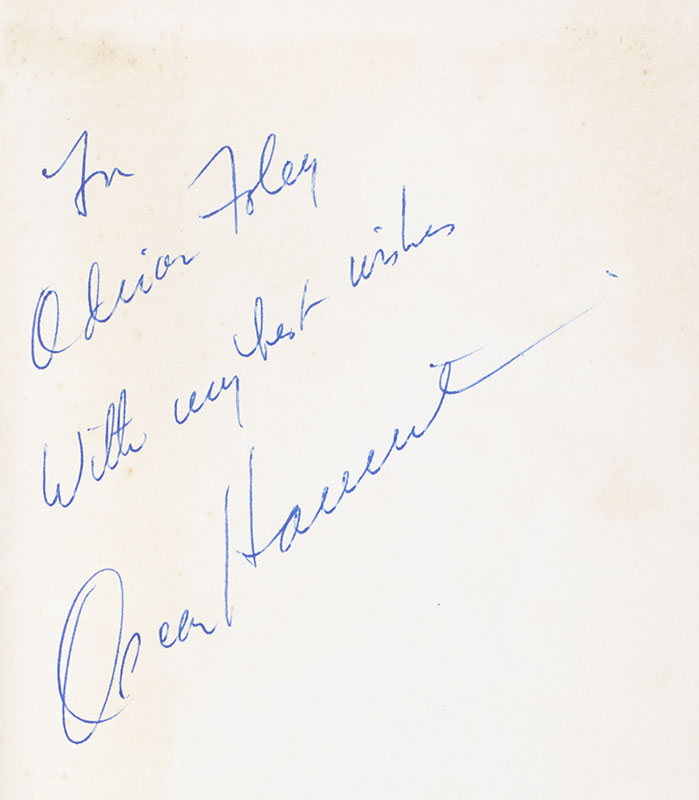 For
Adrian Foley
With my best wishes
Oscar